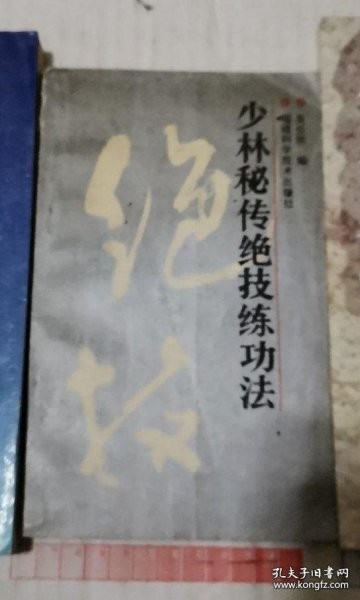 少林秘传绝技练功法
编
福建科学技术出版社
绝技
孔夫子旧书网